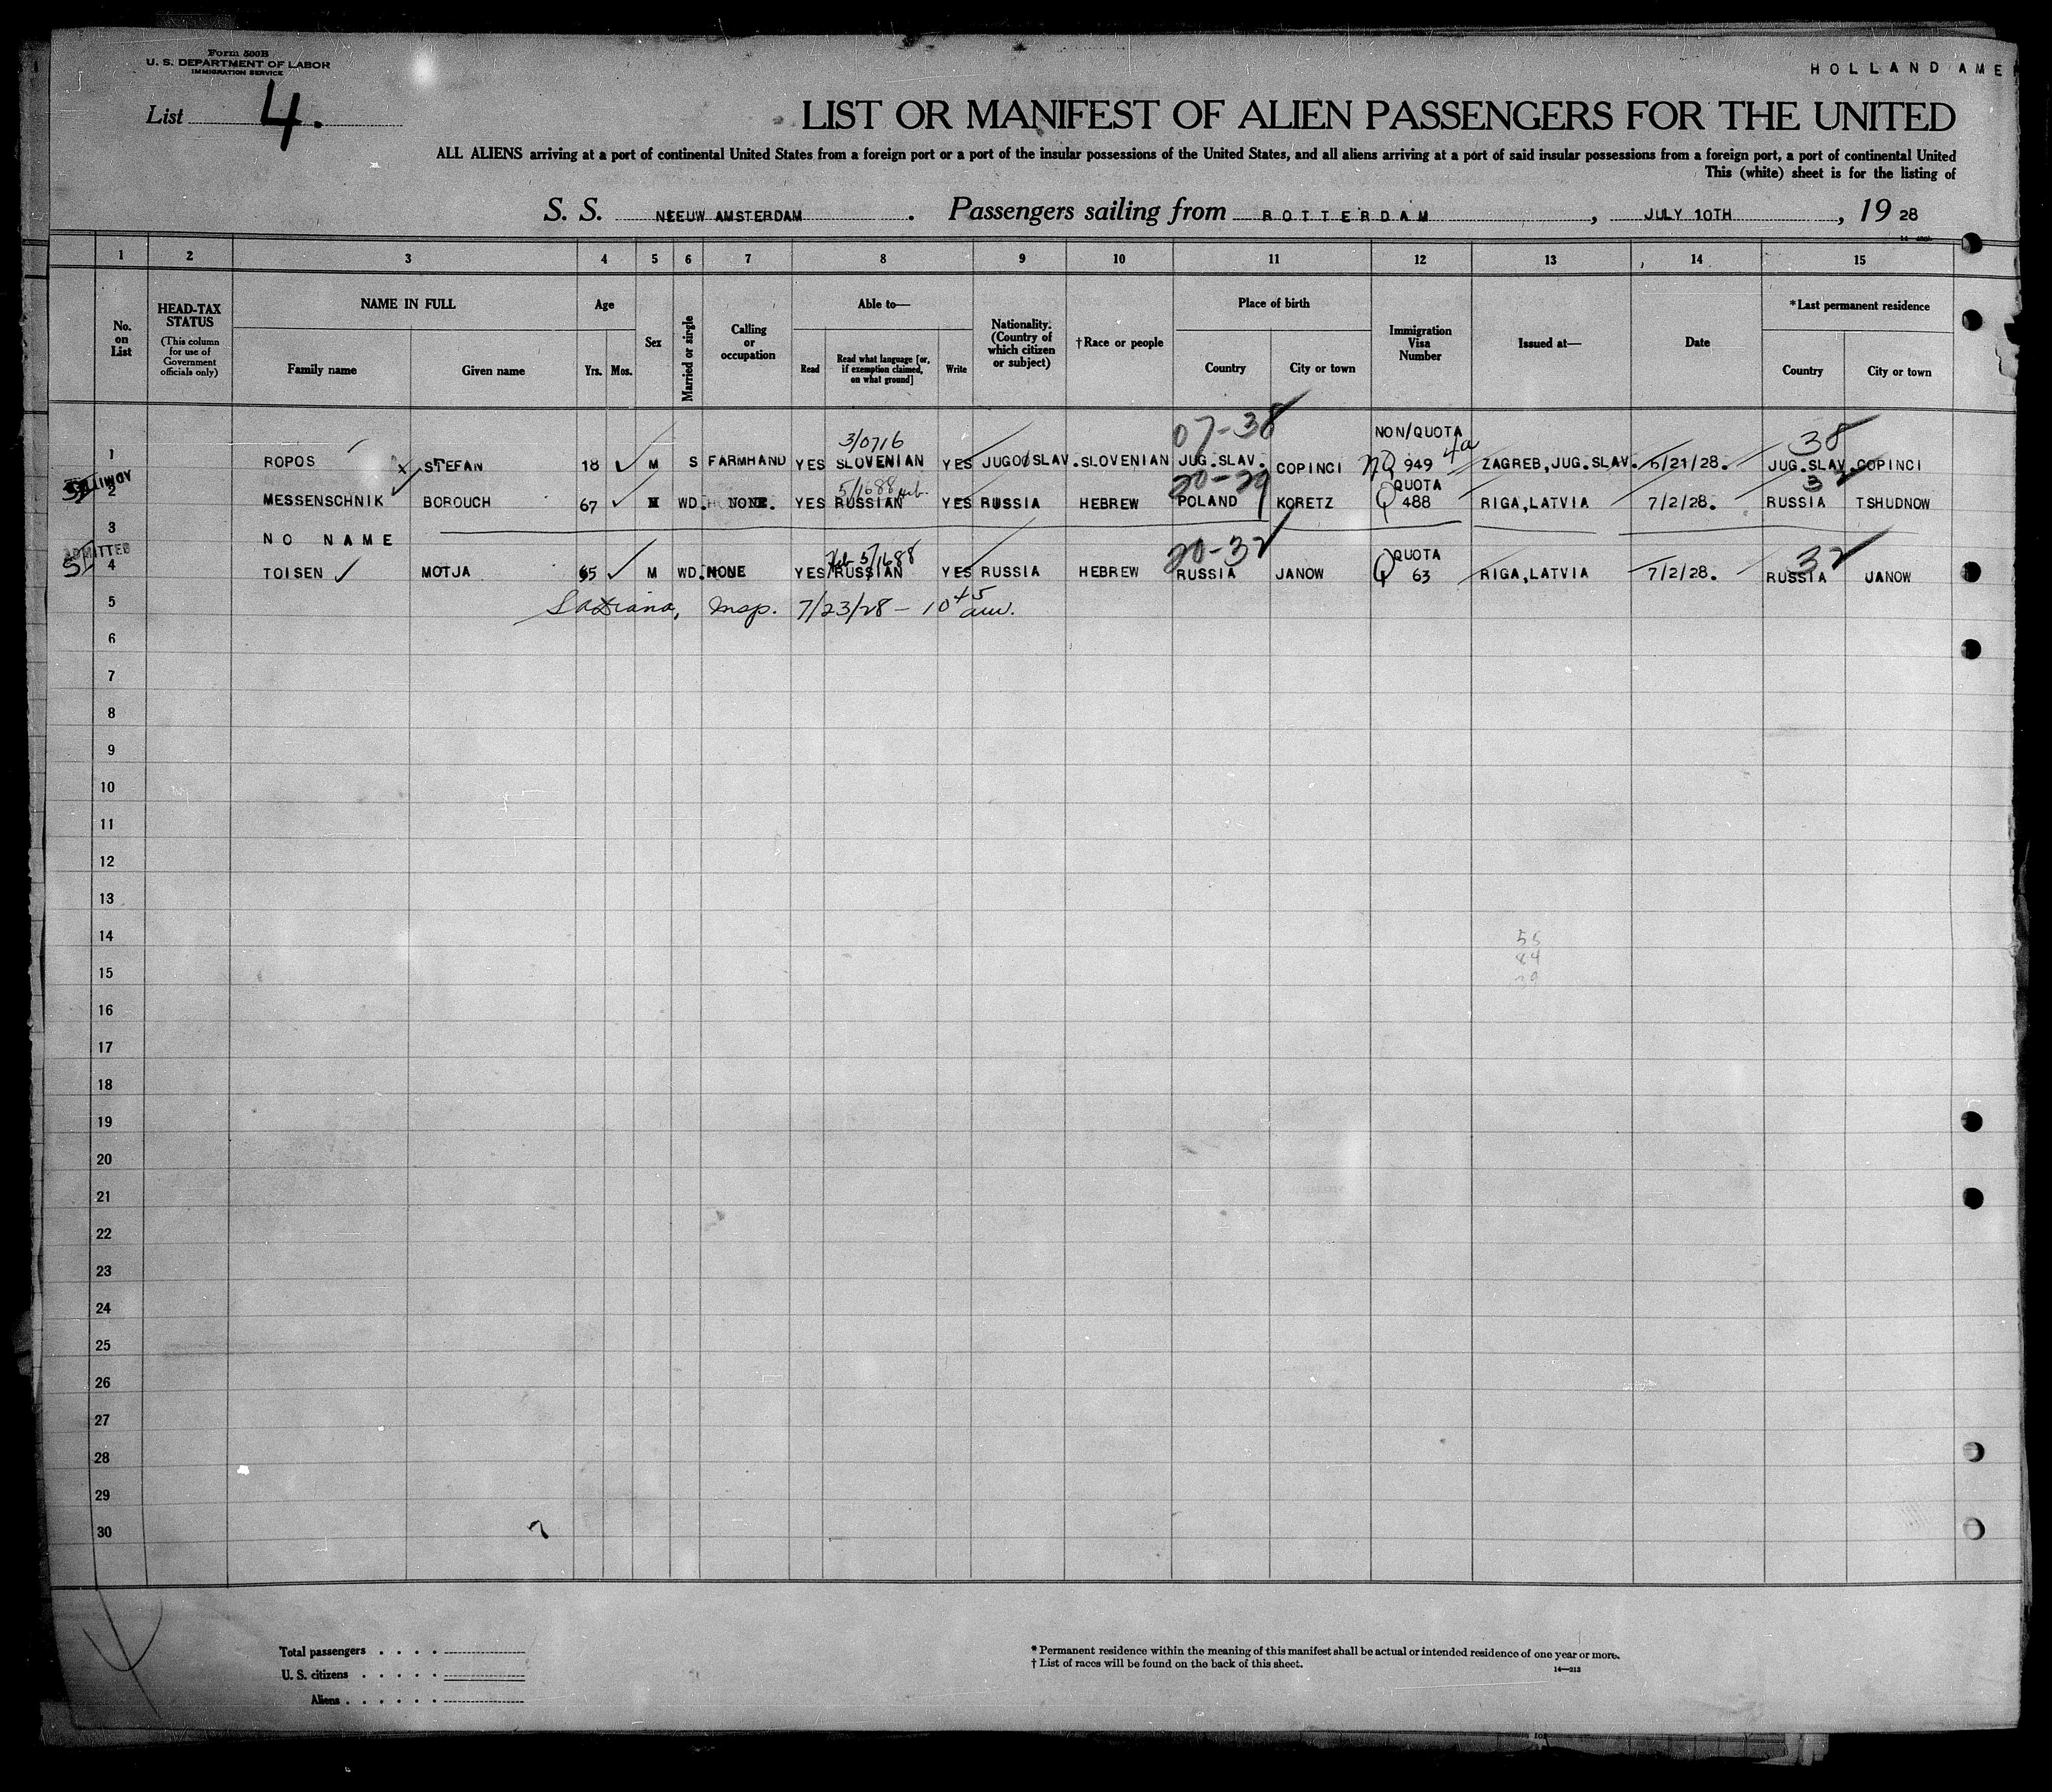 Form 500B
U. S. DEPARTMENT OF LABOR
IMMIGRATION SERVICE
HOLLAND AME
List 4.
LIST OR MANIFEST OF ALIEN PASSENGERS FOR THE UNITED
ALL ALIENS arriving at a port of continental United States from a foreign port or a port of the insular possessions of the United States, and all aliens arriving at a port of said insular possessions from a foreign port, a port of continental United
This (white) sheet is for the listing of
S. S. NEEUW AMSTERDAM . Passengers sailing from ROTTERDAM , JULY 10TH , 19 28
1 2 3 4 5 6 7 8 9 10 11 12 13 14 15
No. on List
HEAD-TAX STATUS (This column for use of Government officials only)
NAME IN FULL
Family name Given name
Age
Yrs. Mos.
Sex
Married or single
Calling or occupation
Able to—
Read Read what language [or, if exemption claimed, on what ground] Write
Nationality. (Country of which citizen or subject)
†Race or people
Place of birth
Country City or town
Immigration Visa Number
Issued at—
Date
*Last permanent residence
Country City or town
3/0716 07-38 NON/QUOTA 38
1 ROPOS x STEFAN 18 M S FARMHAND YES SLOVENIAN YES JUGOSLAV. SLOVENIAN JUG.SLAV. COPINCI NQ 949 ZAGREB, JUG.SLAV. 6/21/28. JUG.SLAV. COPINCI
5/1688 Heb. 20-29 QUOTA 32
2 MESSENSCHNIK BOROUCH 67 M WD. NONE. YES RUSSIAN YES RUSSIA HEBREW POLAND KORETZ Q 488 RIGA, LATVIA 7/2/28. RUSSIA TSHUDNOW
3 NO NAME
ADMITTED
Heb 5/1688 20-32 QUOTA 32
4 TOISEN MOTJA 65 M WD. NONE YES RUSSIAN YES RUSSIA HEBREW RUSSIA JANOW Q 63 RIGA, LATVIA 7/2/28. RUSSIA JANOW
5 Insp. 7/23/28 – 10 45 am.
6
7
8
9
10
11
12
13
14
15
16
17
18
19
20
21
22
23
24
25
26
27
28
29
30
Total passengers
U. S. citizens
Aliens
* Permanent residence within the meaning of this manifest shall be actual or intended residence of one year or more.
† List of races will be found on the back of this sheet.
14—213